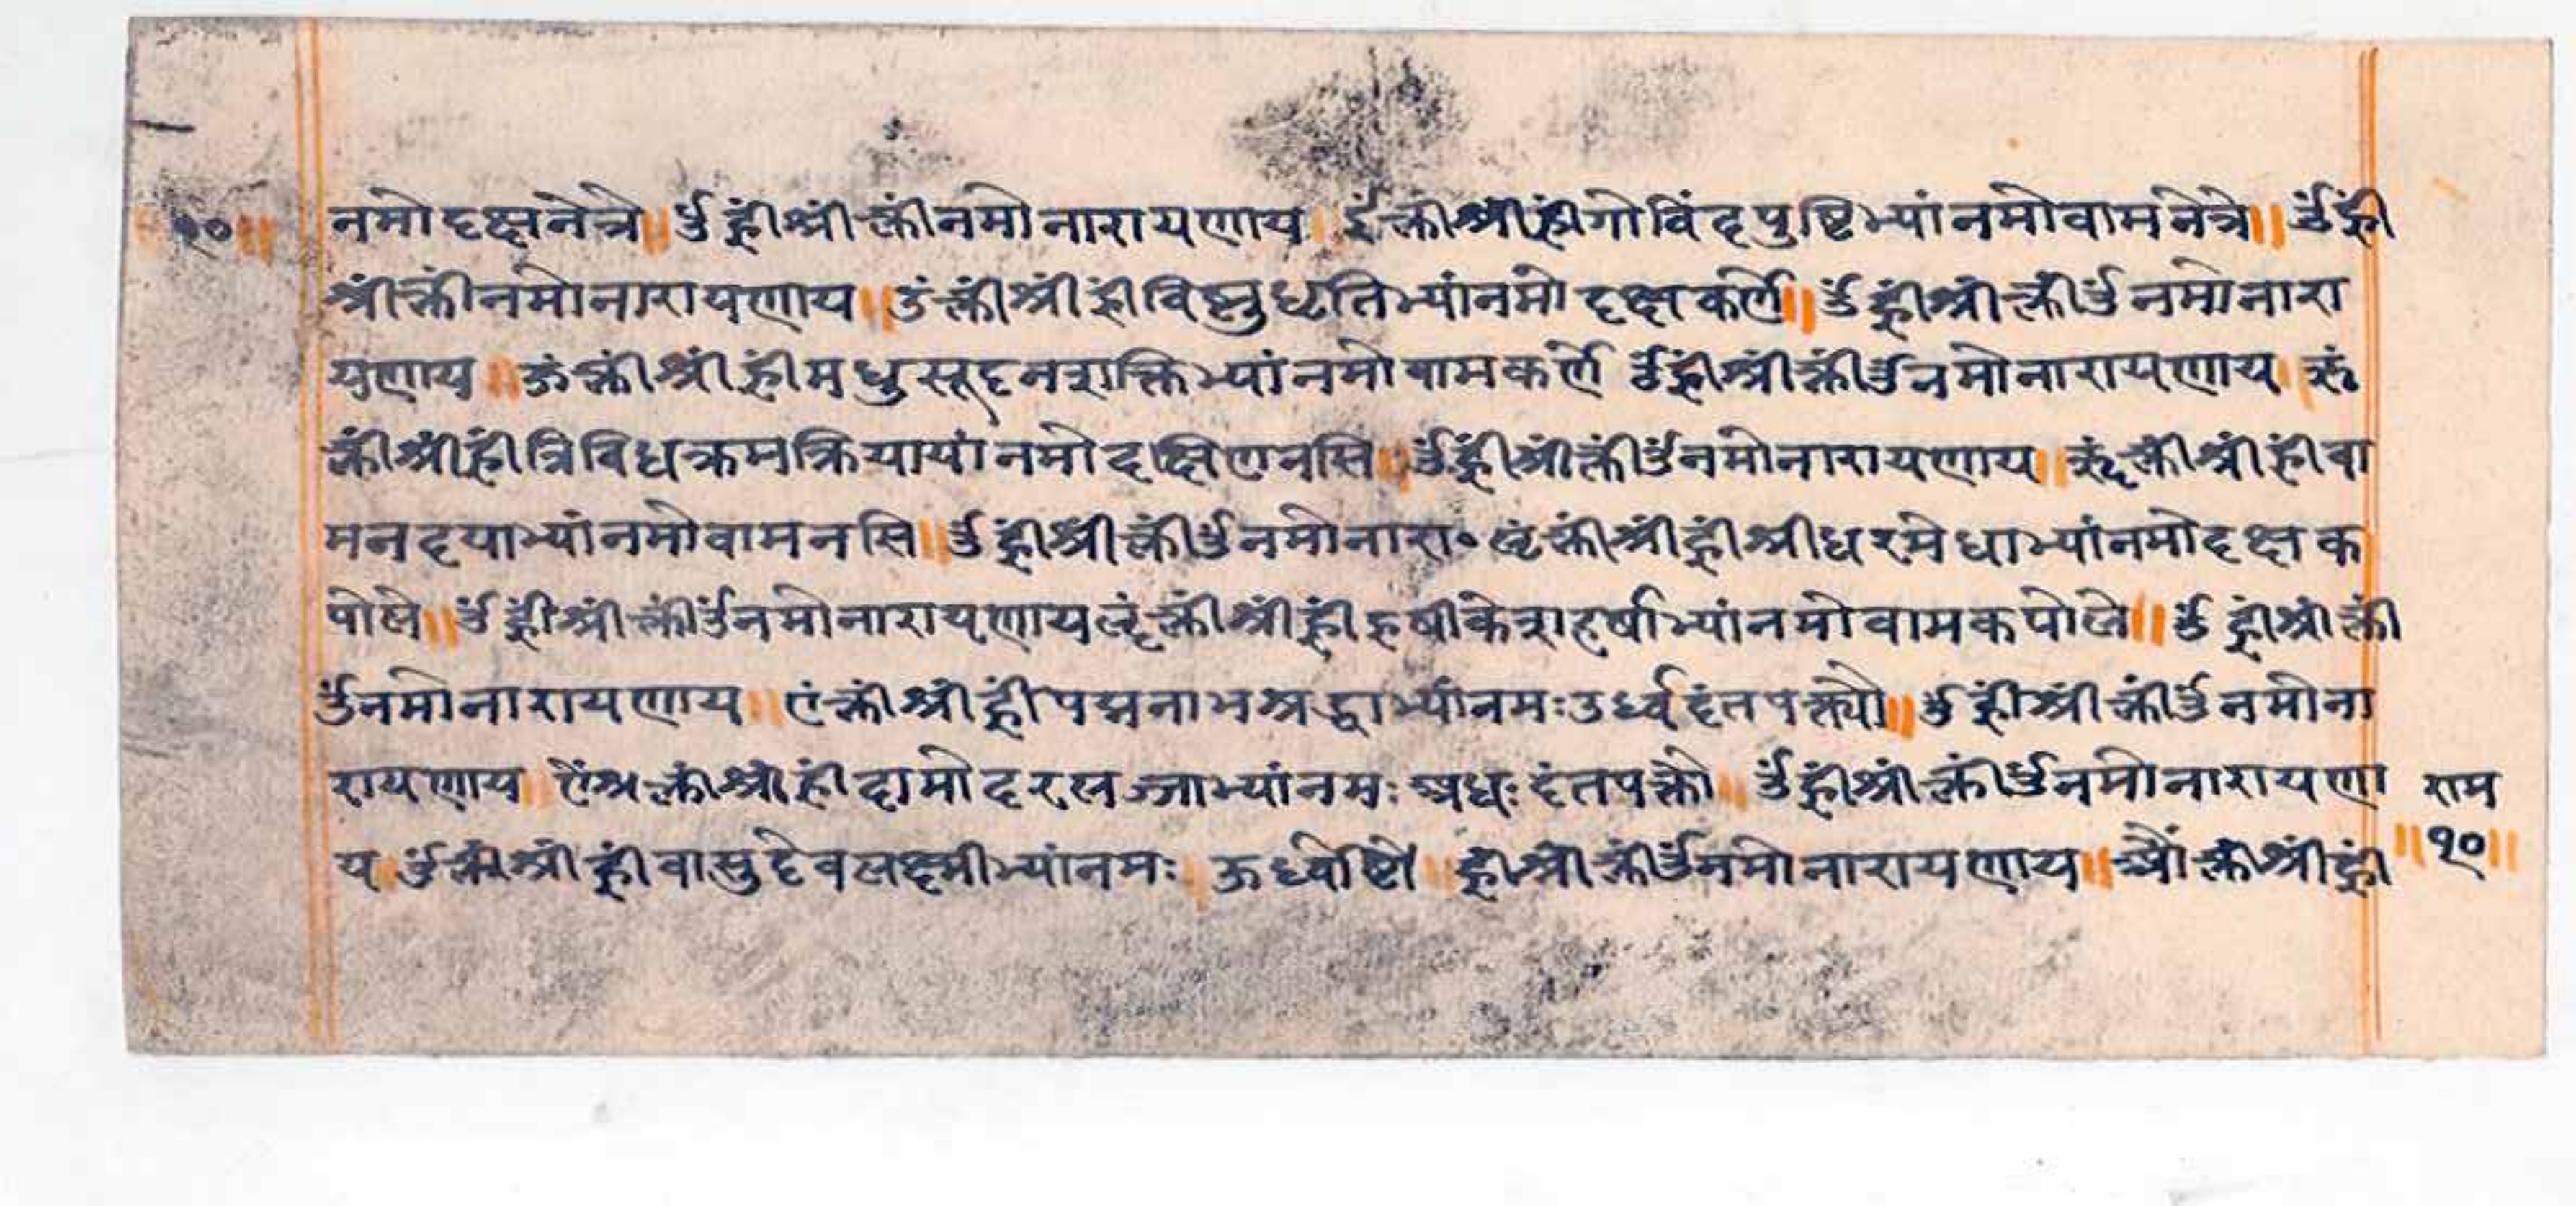 १० ॥ नमोदक्षनेत्रे ॥ ॐ ह्रीं श्रीं क्लीं नमो नारायणाय । इं क्लीं श्रीं ह्रीं गोविंदपुष्टिभ्यां नमो वामनेत्रे ॥ ॐ ह्रीं
श्रीं क्लीं नमो नारायणाय ॥ उं क्लीं श्रीं ह्रीं विष्णुधृतिभ्यां नमो दक्षकर्णे ॥ ॐ ह्रीं श्रीं क्लीं ॐ नमो नारा
यणाय ॥ ऊं क्लीं श्रीं ह्रीं मधुसूदनशक्तिभ्यां नमो वामकर्णे ॐ ह्रीं श्रीं क्लीं ॐ नमो नारायणाय । ऋं
क्लीं श्रीं ह्रीं त्रिविधक्रमक्रियायां नमो दक्षिणनसि ॥ ॐ ह्रीं श्रीं क्लीं ॐ नमो नारायणाय ॥ ॠं क्लीं श्रीं ह्रीं वा
मनदयाभ्यां नमो वामनसि ॥ ॐ ह्रीं श्रीं क्लीं ॐ नमो नारा॰ ऌं क्लीं श्रीं ह्रीं श्रीधरमेधाभ्यां नमो दक्षक
पोले ॥ ॐ ह्रीं श्रीं क्लीं ॐ नमो नारायणाय ॡं क्लीं श्रीं ह्रीं हृषीकेशहर्षाभ्यां नमो वामकपोले ॥ ॐ ह्रीं श्रीं क्लीं
ॐ नमो नारायणाय ॥ एं क्लीं श्रीं ह्रीं पद्मनाभश्रद्धाभ्यां नमः उर्ध्वदंतपक्त्यौ ॥ ॐ ह्रीं श्रीं क्लीं ॐ नमो ना
रायणाय ॥ ऐंअ क्लीं श्रीं ह्रीं दामोदरलज्जाभ्यां नमः अधः दंतपक्तौ ॥ ॐ ह्रीं श्रीं क्लीं ॐ नमो नारायणा राम
य ॥ ॐ क्लीं श्रीं ह्रीं वासुदेवलक्ष्मीभ्यां नमः । ऊर्ध्वोष्टौ ॥ ह्रीं श्रीं क्लीं ॐ नमो नारायणाय ॥ औं क्लीं श्रीं ह्रीं ॥ १० ॥